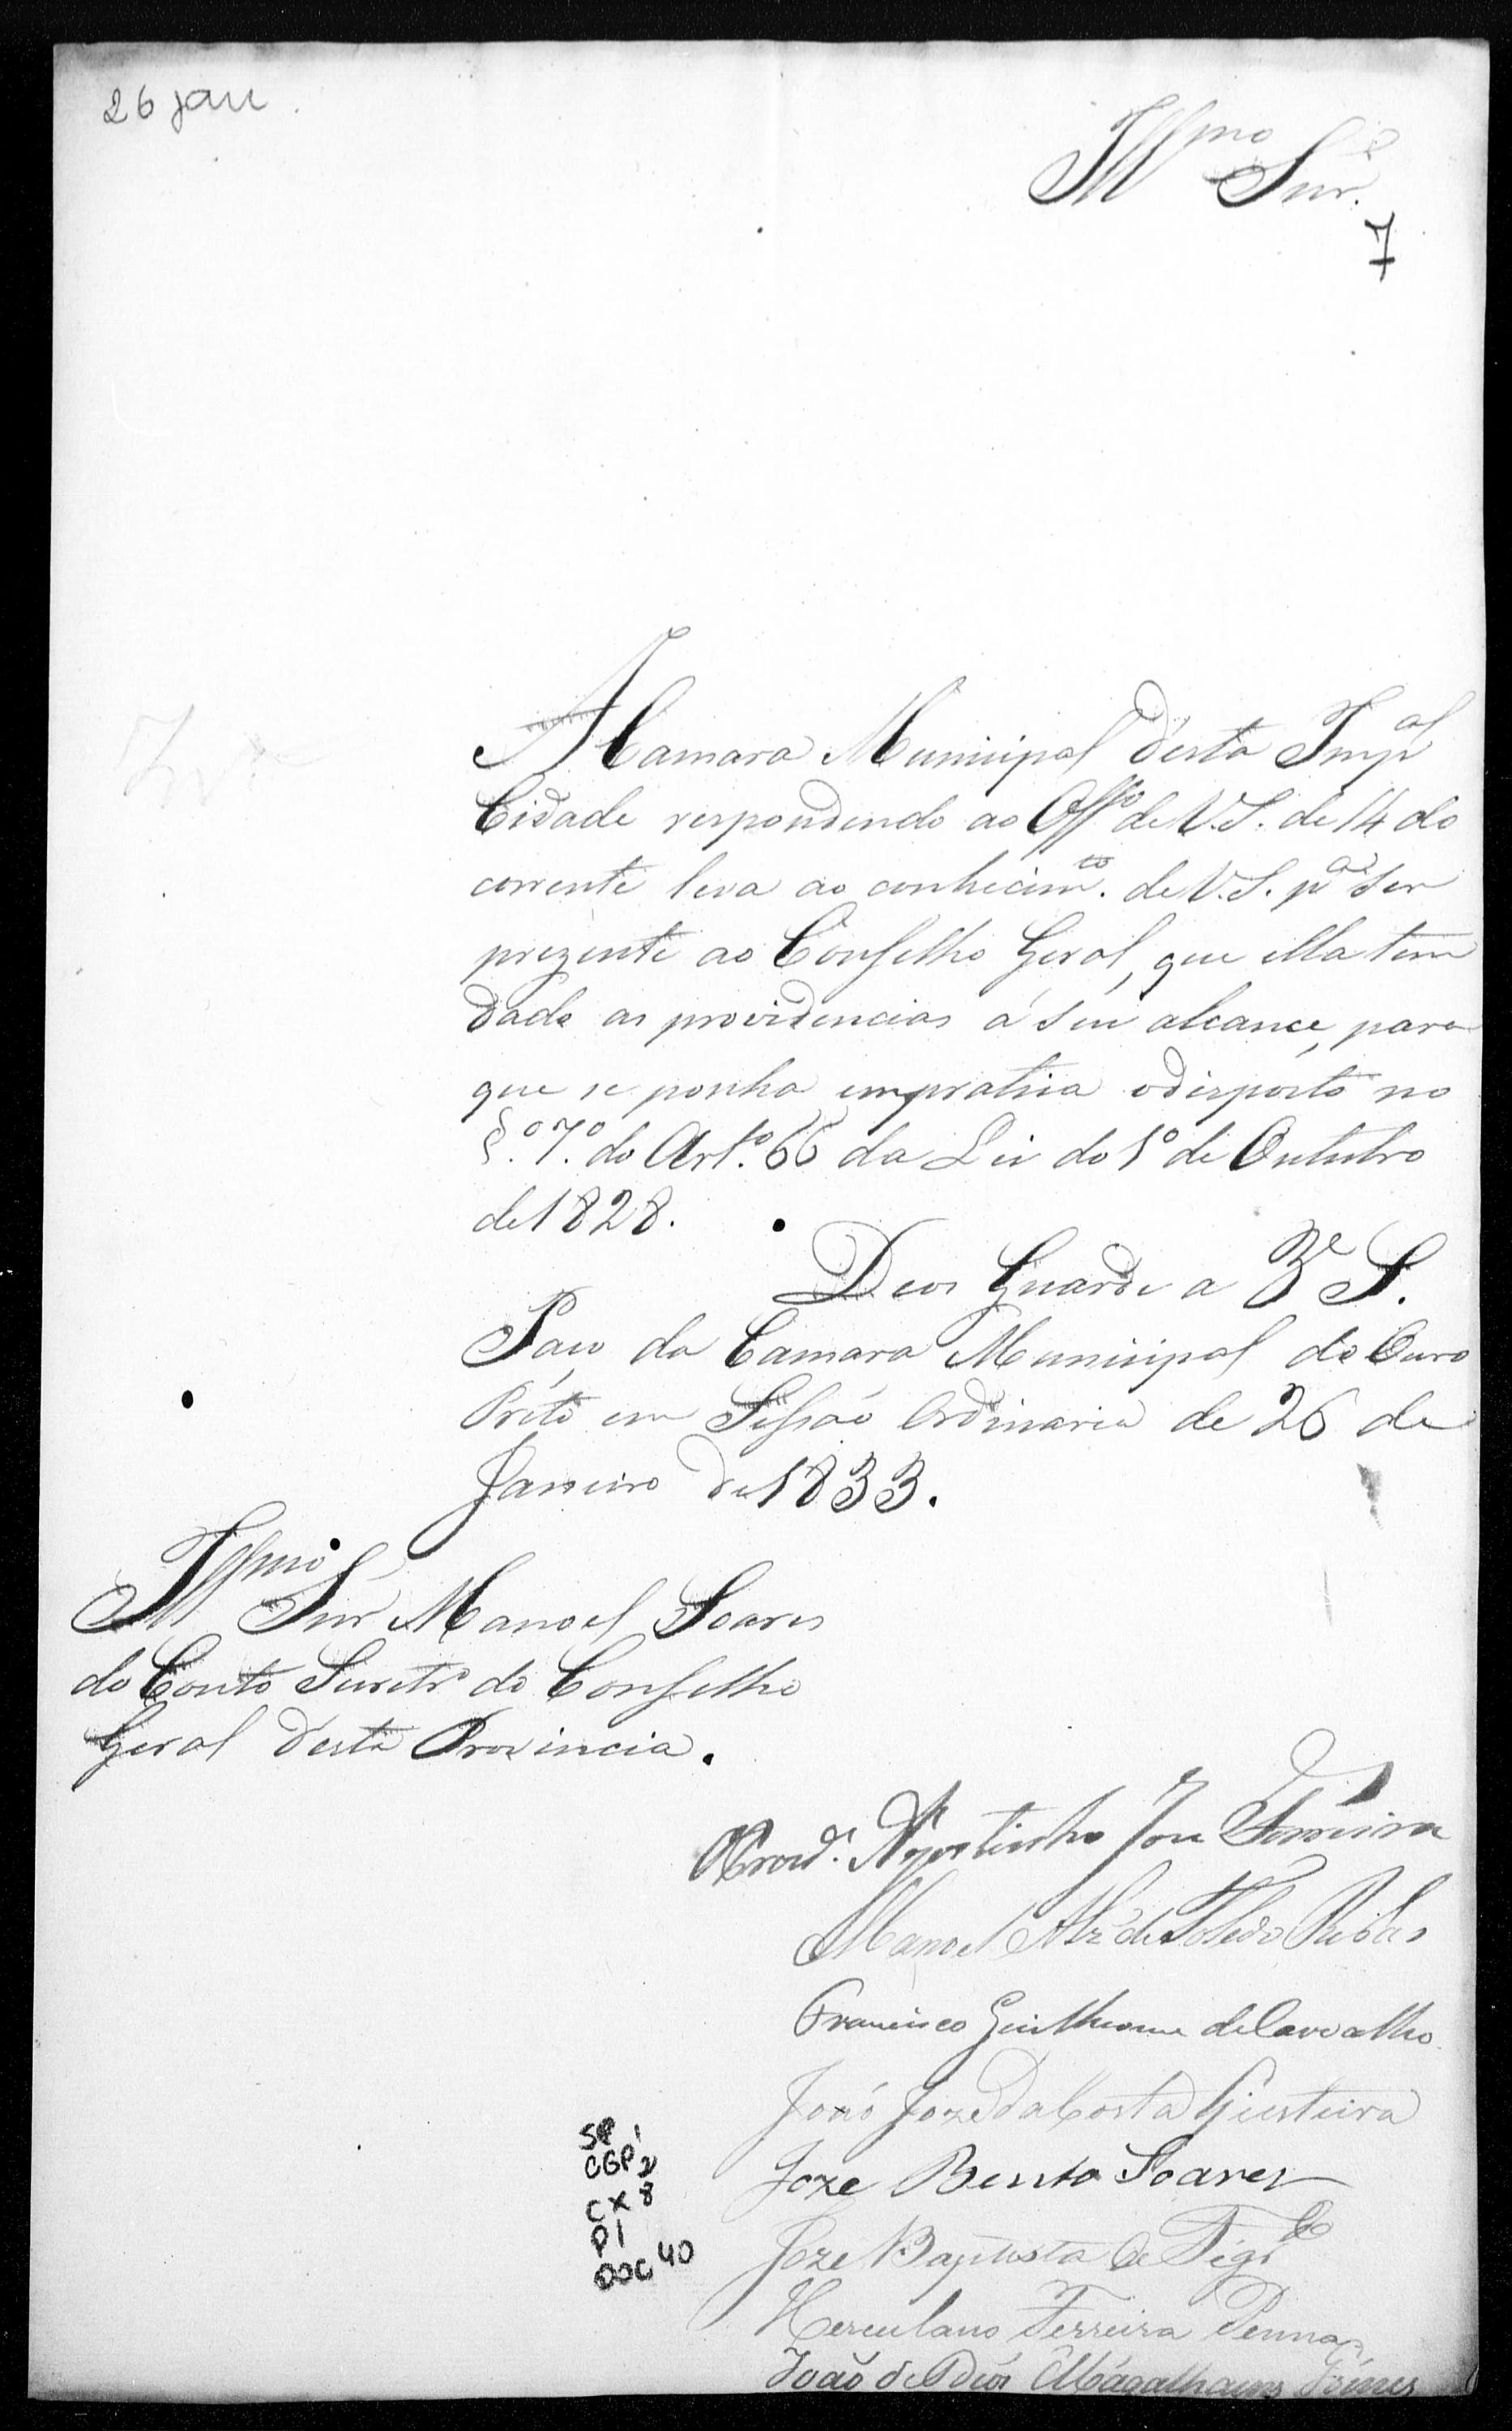 26 jan.
Illmo Snr.
7
A Camara Municipal d'esta Impal
Cidade respondendo ao Offo de V.S. de 14 do
corrente leva ao conhecimto. de V.S. pa ser
prezente ao Conselho Geral, que ella tem
dado as providencias á seu alcance, para
que se ponha em pratica o disposto no
§.º 7.º do Art.º 66 da Lei do 1º de Outubro
de 1828.
Deos Guarde a V. S.
Paço da Camara Municipal do Ouro
Preto em Sessão Ordinaria de 26 de
Janeiro de 1833.
Illmo Snr Manoel Soares
do Couto Secretro do Conselho
Geral desta Provincia.
Agostinho Joze Ferreira
Manoel Alz' de Toledo Ribas
Francisco Guilherme de Carvalho
João Joze da Costa Giesteira
Joze Bento Soares
Joze Baptista de Figdo
Herculano Ferreira Penna
João de Deos Magalhaens Gomes
SP 1
CGP 2
CX 8
P1
DOC 40